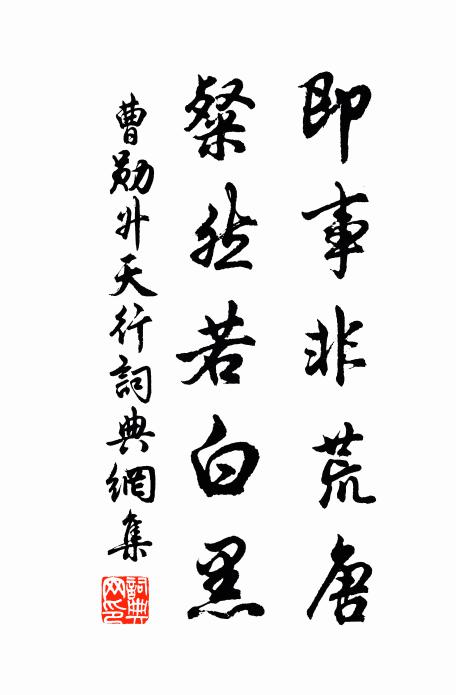 即事非荒唐
粲然若白黑
曹勛升天行詞典網集
詞典網印